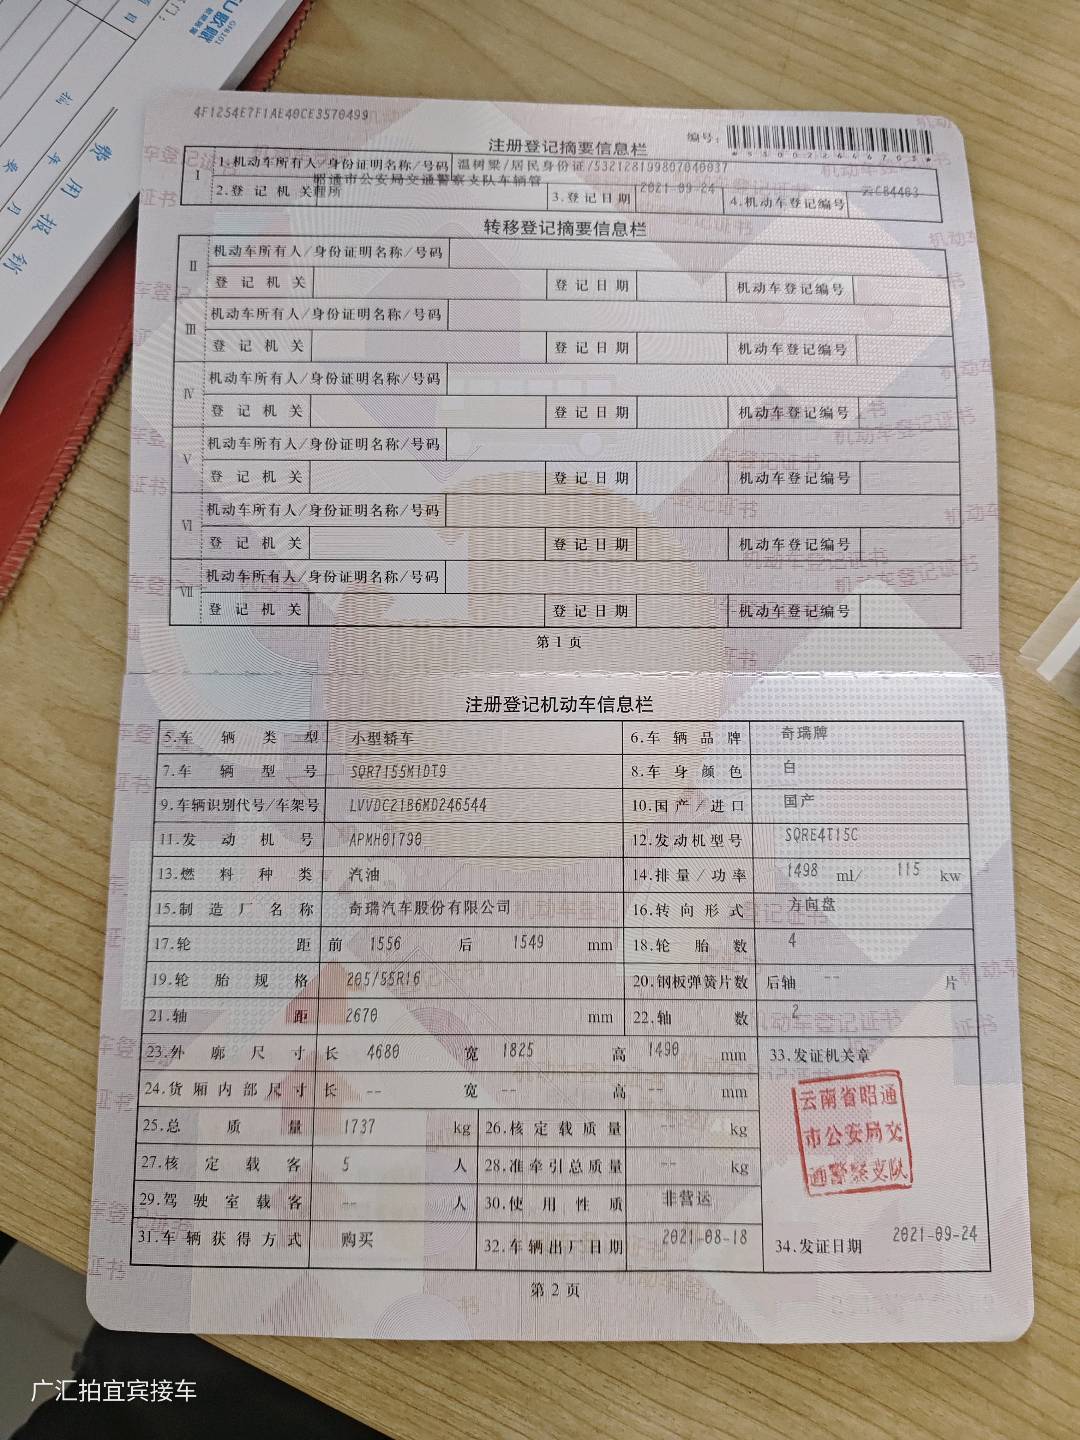 4F1254E7F1AE40CE3570499
编号:
*530022646703*
注册登记摘要信息栏
I 1.机动车所有人/身份证明名称/号码 温树梁/居民身份证/532128199807040037
2.登记机关 昭通市公安局交通警察支队车辆管理所 3.登记日期 2021-09-24 4.机动车登记编号 云CB4403
转移登记摘要信息栏
II 机动车所有人/身份证明名称/号码
登记机关 登记日期 机动车登记编号
III 机动车所有人/身份证明名称/号码
登记机关 登记日期 机动车登记编号
IV 机动车所有人/身份证明名称/号码
登记机关 登记日期 机动车登记编号
V 机动车所有人/身份证明名称/号码
登记机关 登记日期 机动车登记编号
VI 机动车所有人/身份证明名称/号码
登记机关 登记日期 机动车登记编号
VII 机动车所有人/身份证明名称/号码
登记机关 登记日期 机动车登记编号
第1页
注册登记机动车信息栏
5.车辆类型 小型轿车 6.车辆品牌 奇瑞牌
7.车辆型号 SQR7155M1DT9 8.车身颜色 白
9.车辆识别代号/车架号 LVVDC21B6MD246544 10.国产/进口 国产
11.发动机号 APMH01790 12.发动机型号 SQRE4T15C
13.燃料种类 汽油 14.排量/功率 1498 ml/ 115 kw
15.制造厂名称 奇瑞汽车股份有限公司 16.转向形式 方向盘
17.轮距 前 1556 后 1549 mm 18.轮胎数 4
19.轮胎规格 205/55R16 20.钢板弹簧片数 后轴 -- 片
21.轴距 2670 mm 22.轴数 2
23.外廓尺寸 长 4680 宽 1825 高 1490 mm 33.发证机关章
24.货厢内部尺寸 长 -- 宽 -- 高 -- mm
云南省昭通
市公安局交
通警察支队
25.总质量 1737 kg 26.核定载质量 -- kg
27.核定载客 5 人 28.准牵引总质量 -- kg
29.驾驶室载客 -- 人 30.使用性质 非营运
31.车辆获得方式 购买 32.车辆出厂日期 2021-08-18 34.发证日期 2021-09-24
第2页
费用报销
广汇拍宜宾接车